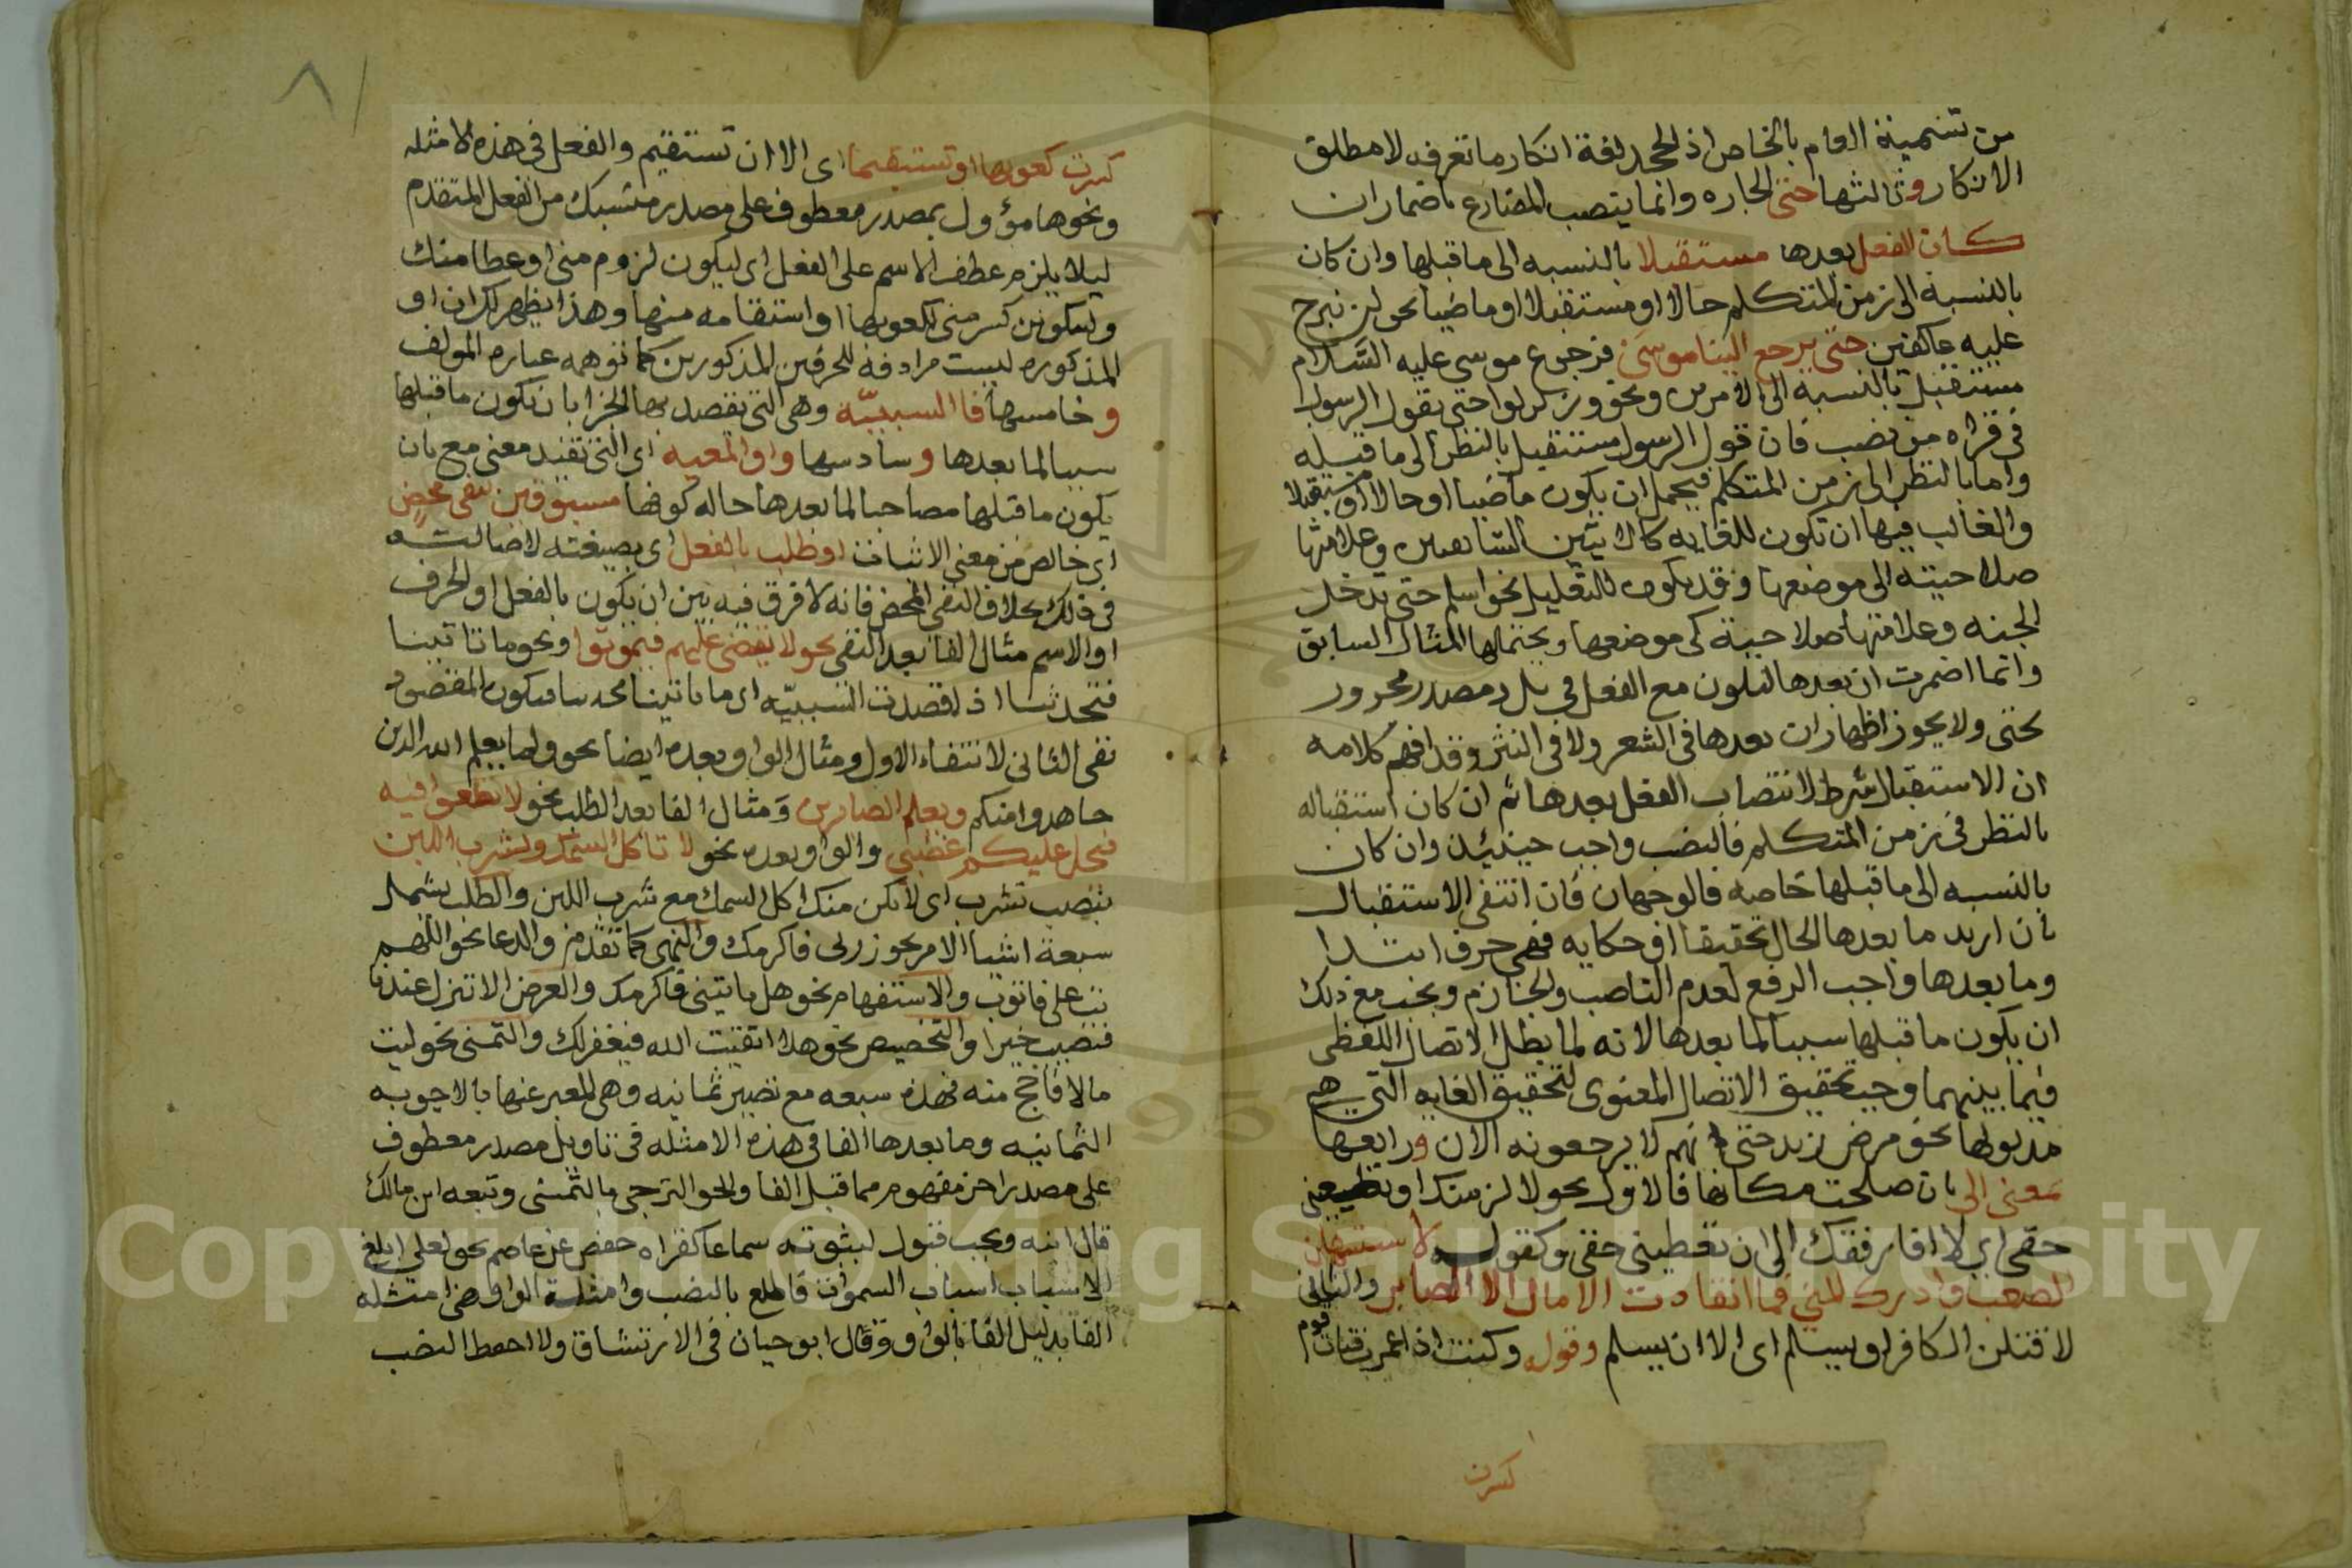 من تسمية العام بالخاص اذ الجحد لغة انكار ما تعرف لا مطلق
الانكار وثالثها حتى الجاره وانما ينتصب المضارع باضمار ان
كان الفعل بعدها مستقبلا بالنسبه الى ما قبلها وان كان
بالنسبة الى زمن المتكلم حالا او مستقبلا او ماضيا نحو لن نبرح
عليه عاكفين حتى يرجع الينا موسى فرجوع موسى عليه السلام
مستقبل بالنسبه الى الامرين ونحو وزلزلوا حتى يقول الرسول
في قراه من نصب فان قول الرسول مستقبل بالنظر الى ما قبله
واما بالنظر الى زمن المتكلم فيحمل ان يكون ماضيا او حالا او مستقبلا
والغالب فيها ان تكون للغايه كالايتين السابقتين وعلامتها
صلاحيته الى موضعها وقد يكون للتعليل نحو اسلم حتى تدخل
الجنه وعلامتها صلاحية كي موضعها ويحتملها المثال السابق
وانما اضمرت ان بعدها لتكون مع الفعل في مصدر مجرور
بحتى ولا يجوز اظهار ان بعدها في الشعر ولا في النثر وقد افهم كلامه
ان الاستقبال شرط لانتصاب الفعل بعدها ثم ان كان استقباله
بالنظر في زمن المتكلم فالنصب واجب حينئذ وان كان
بالنسبه الى ما قبلها خاصه فالوجهان فان انتفى الاستقبال
بان اريد ما بعدها الحال تحقيقا او حكايه فهي حرف ابتدا
وما بعدها واجب الرفع لعدم الناصب والجازم ويجب مع ذلك
ان يكون ما قبلها سببا لما بعدها لانه لما بطل الاتصال اللفظي
فيما بينهما وجب تحقيق الاتصال المعنوي لتحقيق الغايه التي هي
مدلولها نحو مرض زيد حتى انهم لا يرجعونه الان ورابعها
بمعنى الى بان صلحت مكانها فالاول نحو لالزمنك او تعطيني
حقي اي لا افارقك الى ان تعطيني حقي وكقوله لاستسهلن
الصعب او ادرك المنى فما انقادت الامال الا لصابر والثاني
لاقتلن الكافر او يسلم اي الا ان يسلم وقوله وكنت اذا غمزت قناة قوم
كسرت
كسرت كعوبها او تستقيما اي الا ان تستقيم والفعل في هذه الامثله
ونحوها مؤول بمصدر معطوف على مصدر منسبك من الفعل المتقدم
ليلا يلزم عطف الاسم على الفعل اي ليكون لزوم مني او عطا منك
وليكونن كسر مني لكعوبها او استقامه منها وهذا يظهر لك ان او
المذكوره ليست مرادفه للحرفين المذكورين كما توهمه عباره المولف
وخامسها فا السببيّة وهي التي يقصد بها الجزا بان يكون ما قبلها
سببا لما بعدها وسادسها واو المعيه اي التي تفيد معنى مع بان
يكون ما قبلها مصاحبا لما بعدها حاله كونها مسبوقين بنفي محض
اي خالص من معنى الاثبات او طلب بالفعل اي بصيغته لاصالته
في ذلك بخلاف النفي المحض فانه لا فرق فيه بين ان يكون بالفعل او الحرف
او الاسم مثال الفا بعد النفي نحو لا يقضى عليهم فيموتوا ونحو ما تاتينا
فتحدثنا اذ قصدت السببيّه اي ما تاتينا فيكون المقصود
نفي الثاني لانتفاء الاول ومثال الواو بعده ايضا نحو ولما يعلم الله الذين
جاهدوا منكم ويعلم الصابرين ومثال الفا بعد الطلب نحو لا تطغوا فيه
فيحل عليكم غضبي والواو بعده نحو لا تاكل السمك وتشرب اللبن
بنصب تشرب اي لا يكن منك اكل السمك مع شرب اللبن والطلب يشمل
سبعة اشيا الامر نحو زرني فاكرمك والنهي كما تقدم والدعا نحو اللهم
تب علي فاتوب والاستفهام نحو هل تاتيني فاكرمك والعرض الا تنزل عندنا
فتصيب خيرا والتحضيض نحو هلا اتقيت الله فيغفر لك والتمني نحو ليت
مالا فاحج منه فهذه سبعه مع تصير ثمانيه وهي المعبر عنها بالاجوبه
الثمانيه وما بعدها الفا في هذه الامثله في تاويل مصدر معطوف
على مصدر اخر مفهوم مما قبل الفا والحق الترجي بالتمني وتبعه ابن مالك
قال ابنه ويجب قبول لثبوته سماعا كقراه حفص عن عاصم نحو لعلي ابلغ
الاسباب اسباب السموات فاطلع بالنصب وامثلة الواو هي امثله
الفا بدليل الفا بالواو وقال ابو حيان في الارتشاف ولا احفظ النصب